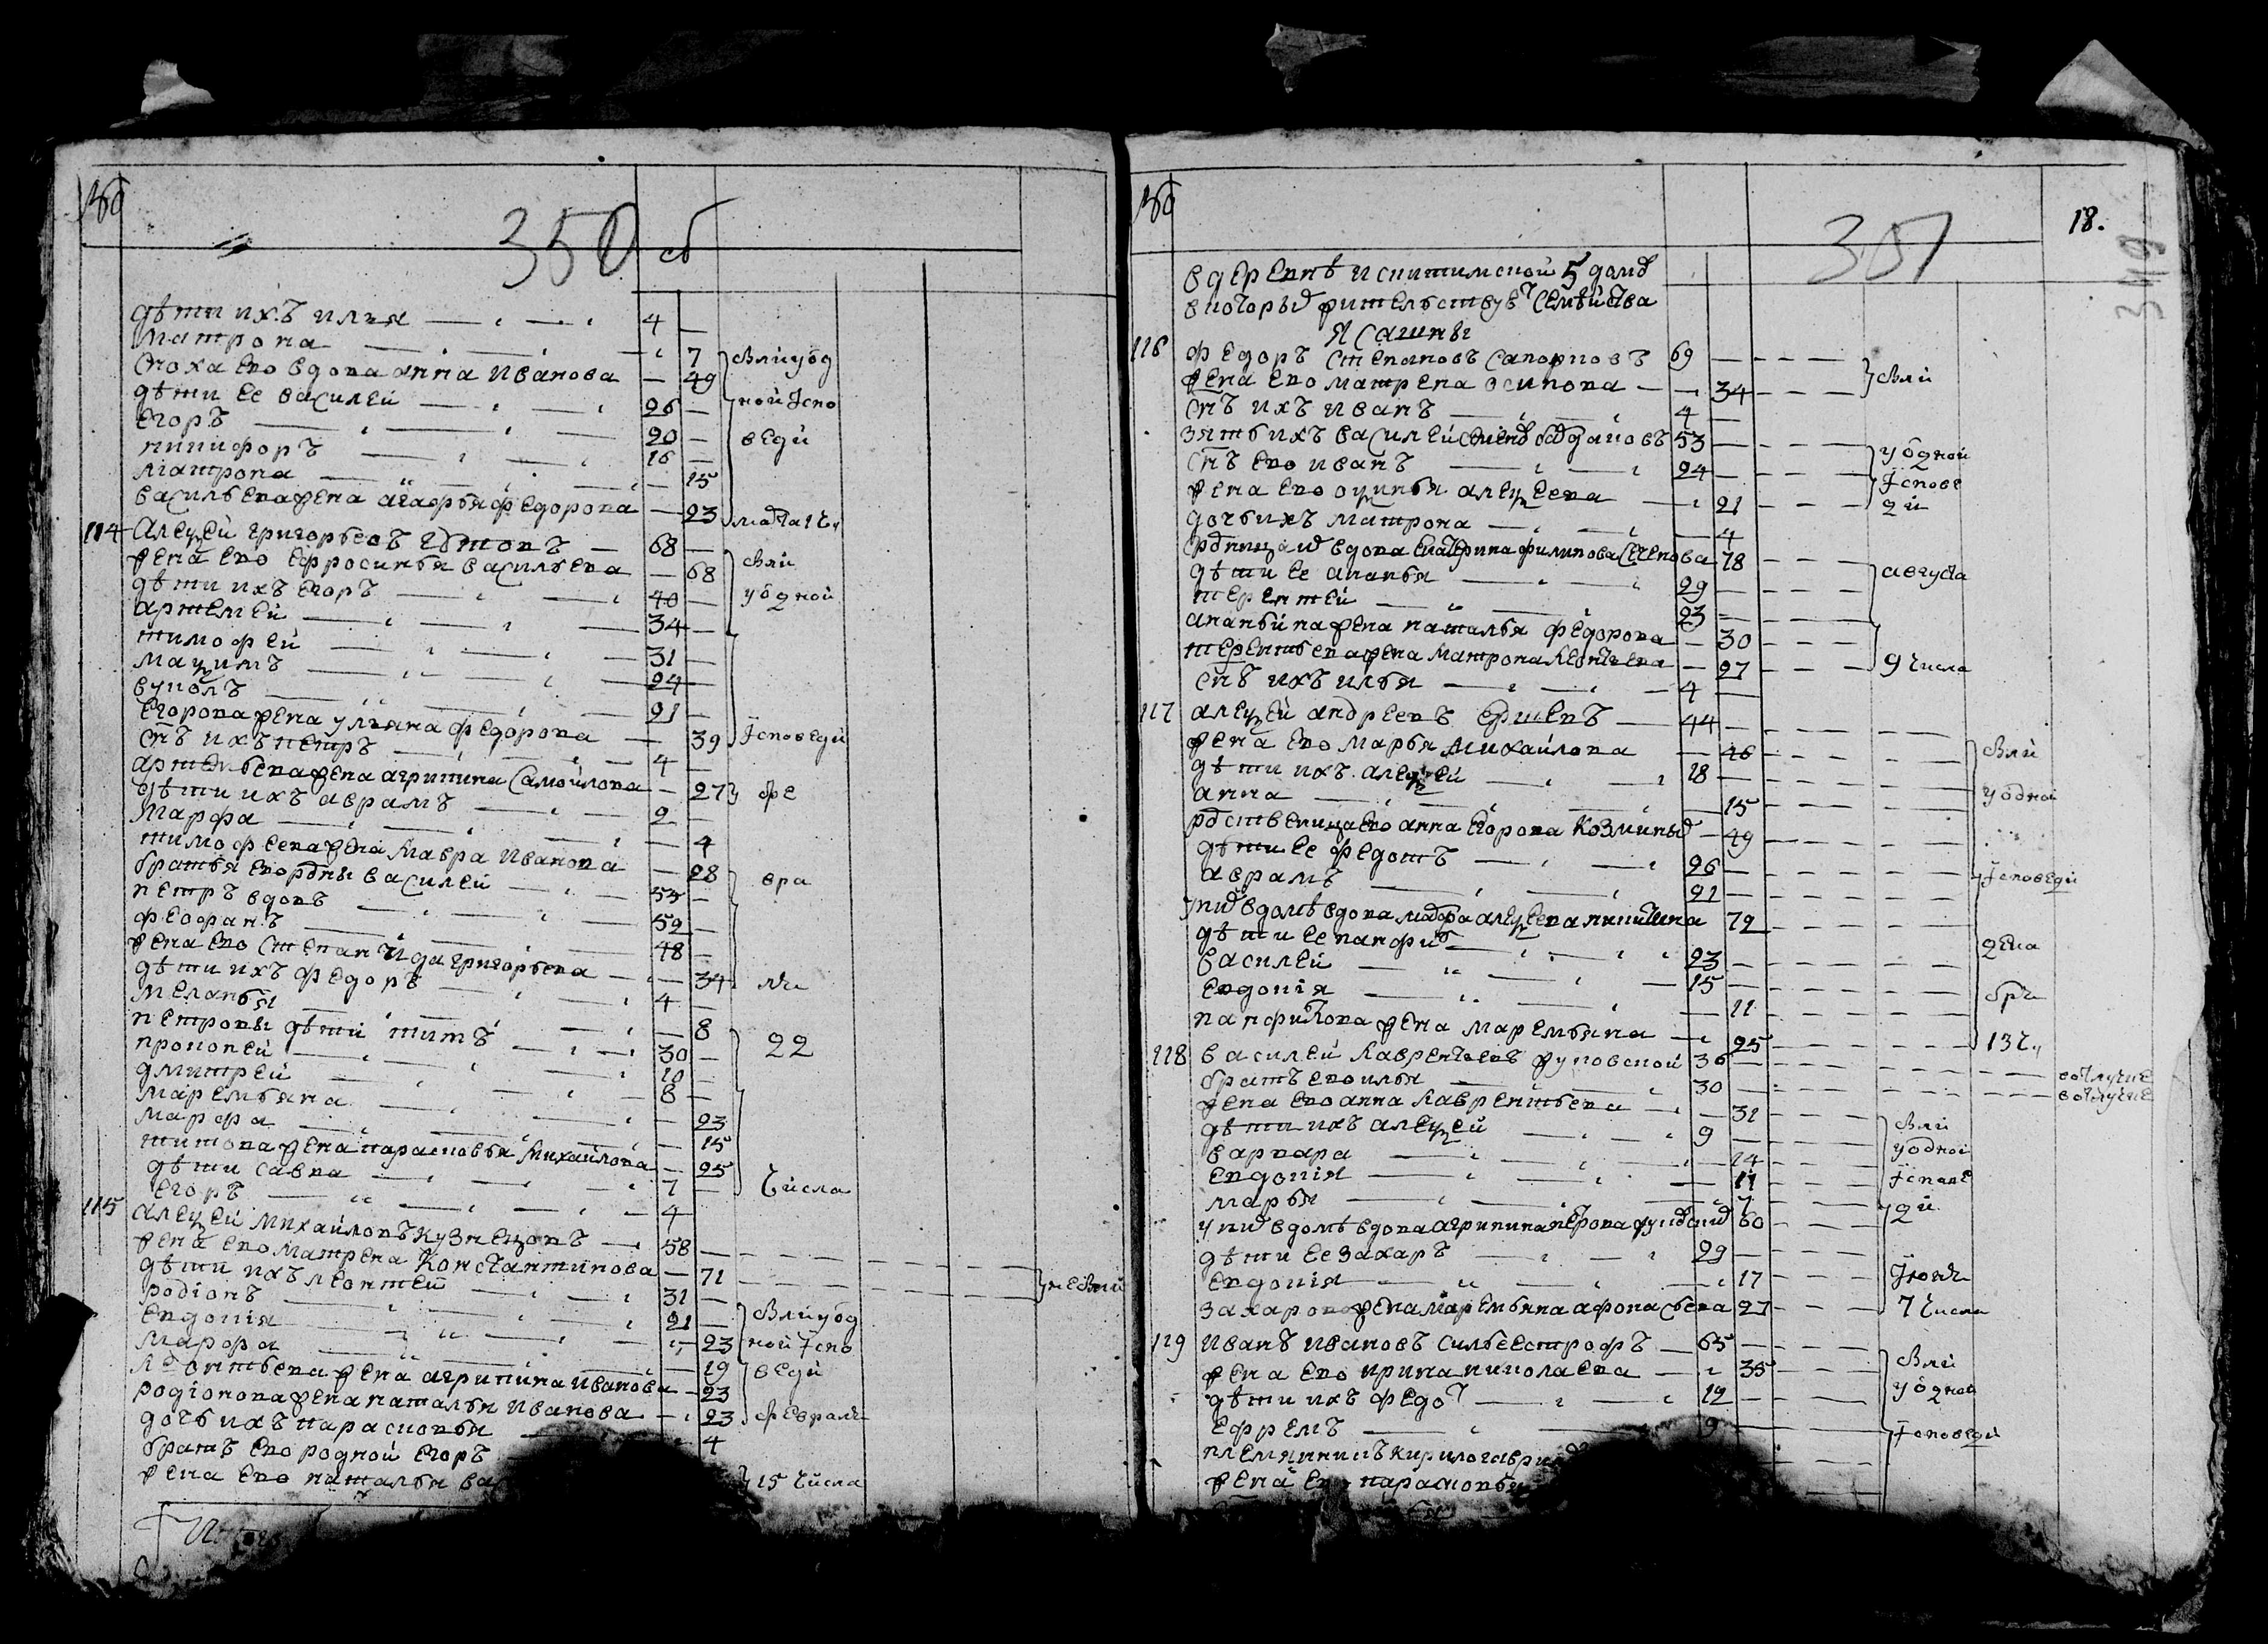 350 об
дѣти ихъ илья 4
матрона 7
сноха ево вдова анна иванова 49
дѣти ее василей 26
егоръ 20
никифоръ 16
матрона 15
васильева жена агафья федорова 23
114 алеѯей григорьевъ 68
жена ево ефросинья васильева 68
дѣти ихъ егоръ 40
артемей 34
тимофей 31
маѯимъ 24
вуколъ 21
егорова жена ульяна федорова 39
снъ ихъ петръ 4
артемьева жена агрипина самойлова 27
дѣти ихъ аврамъ 9
марфа 4
тимофеева жена мавра иванова 28
братья ево родны василей 55
петръ вдовъ 59
феофанъ 48
жена ево степанида григорьева 34
дѣти ихъ федоръ 4
меланья 8
петровы дѣти титъ 30
прокопей 10
дмитрей 8
маремьяна 23
марфа 15
титова жена парасковья михайлова 25
дѣти савва 7
егоръ 4
115 алеѯей михайловъ кузнецовъ 58
жена ево матрена константинова 71
дѣти ихъ леонтей 31
родіонъ 21
евдокія 23
марфа 19
леонтьева жена агрипина иванова 23
родіонова жена наталья иванова 23
дочь ихъ парасковья 4
братъ ево родной егоръ
жена ево наталья
вли у од
ной іспо
веди
вли
у одной
ісповеди
фе
вра
ля
22
числа
вли у од
ной іспо
веди
февраля
15 числа
351
18.
349
в деревнѣ искитимской 5 домъ
в которыхъ жительствуютъ семейства
Ясашны
116 федоръ степановъ сапожковъ 69
жена ево матрена осипова 34
снъ ихъ иванъ 4
зять ихъ василей 53
снъ ево иванъ 24
жена ево аѯинья алеѯеева 21
дочь ихъ матрона 4
вдова екатерина филипова 78
дѣти ее ананья 29
терентей 23
ананьина жена наталья федорова 30
терентьева жена матрона леонтьева 27
снъ ихъ илья 4
117 алеѯей андреевъ ершевъ 44
жена ево марья михайлова 46
дѣти ихъ алеѯей 18
анна 15
родственница ево анна егорова козминыхъ 49
дѣти ее федотъ 26
аврамъ 21
у нихъ в домѣ вдова марфа алеѯеева никитина 72
дѣти ее панфилъ 23
василей 15
евдокія 11
панфилова жена маремьяна 25
118 василей лаврентьевъ жуковской 36
братъ ево илья 30
жена ево анна лаврентьева 31
дѣти ихъ алеѯей 9
варвара 14
евдокія 11
марья 7
у нихъ в домѣ вдова агрипина петрова 60
дѣти ее захаръ 29
евдокія 17
захарова жена маремьяна афонасьева 27
119 иванъ ивановъ сильвестровъ 65
жена ево ирина николаева 35
дѣти ихъ федотъ 12
ефремъ 9
племянникъ кирило
жена ево парасковья
вли
у одной
іспове
ди
августа
9 числа
вли
у одной
ісповеди
дека
бря
13 ч
в отлучке
в отлучке
вли
у одной
ісповѣ
ди
іюля
7 числа
вли
у одной
ісповеди